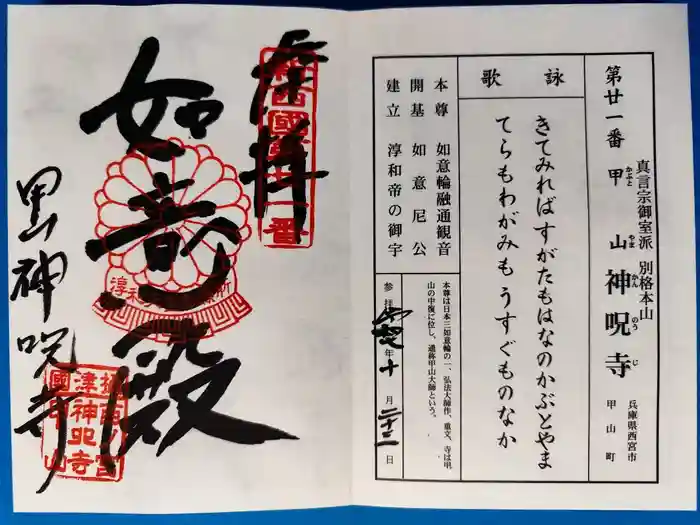 第廿一番 甲山 神呪寺
かぶと やま かんのうじ
真言宗御室派 別格本山
兵庫県西宮市
甲山町
詠歌
きてみればすがたもはなのかぶとやま
てらもわがみもうすぐものなか
本尊 如意輪融通観音
開基 如意尼公
建立 淳和帝の御宇
本尊は日本三如意輪の一、弘法大師作、重文、寺は甲
山の中復に位し、通称甲山大師という。
参拝 年十月二十二日
奉拝
新西國第廿一番
如意殿
甲山神呪寺